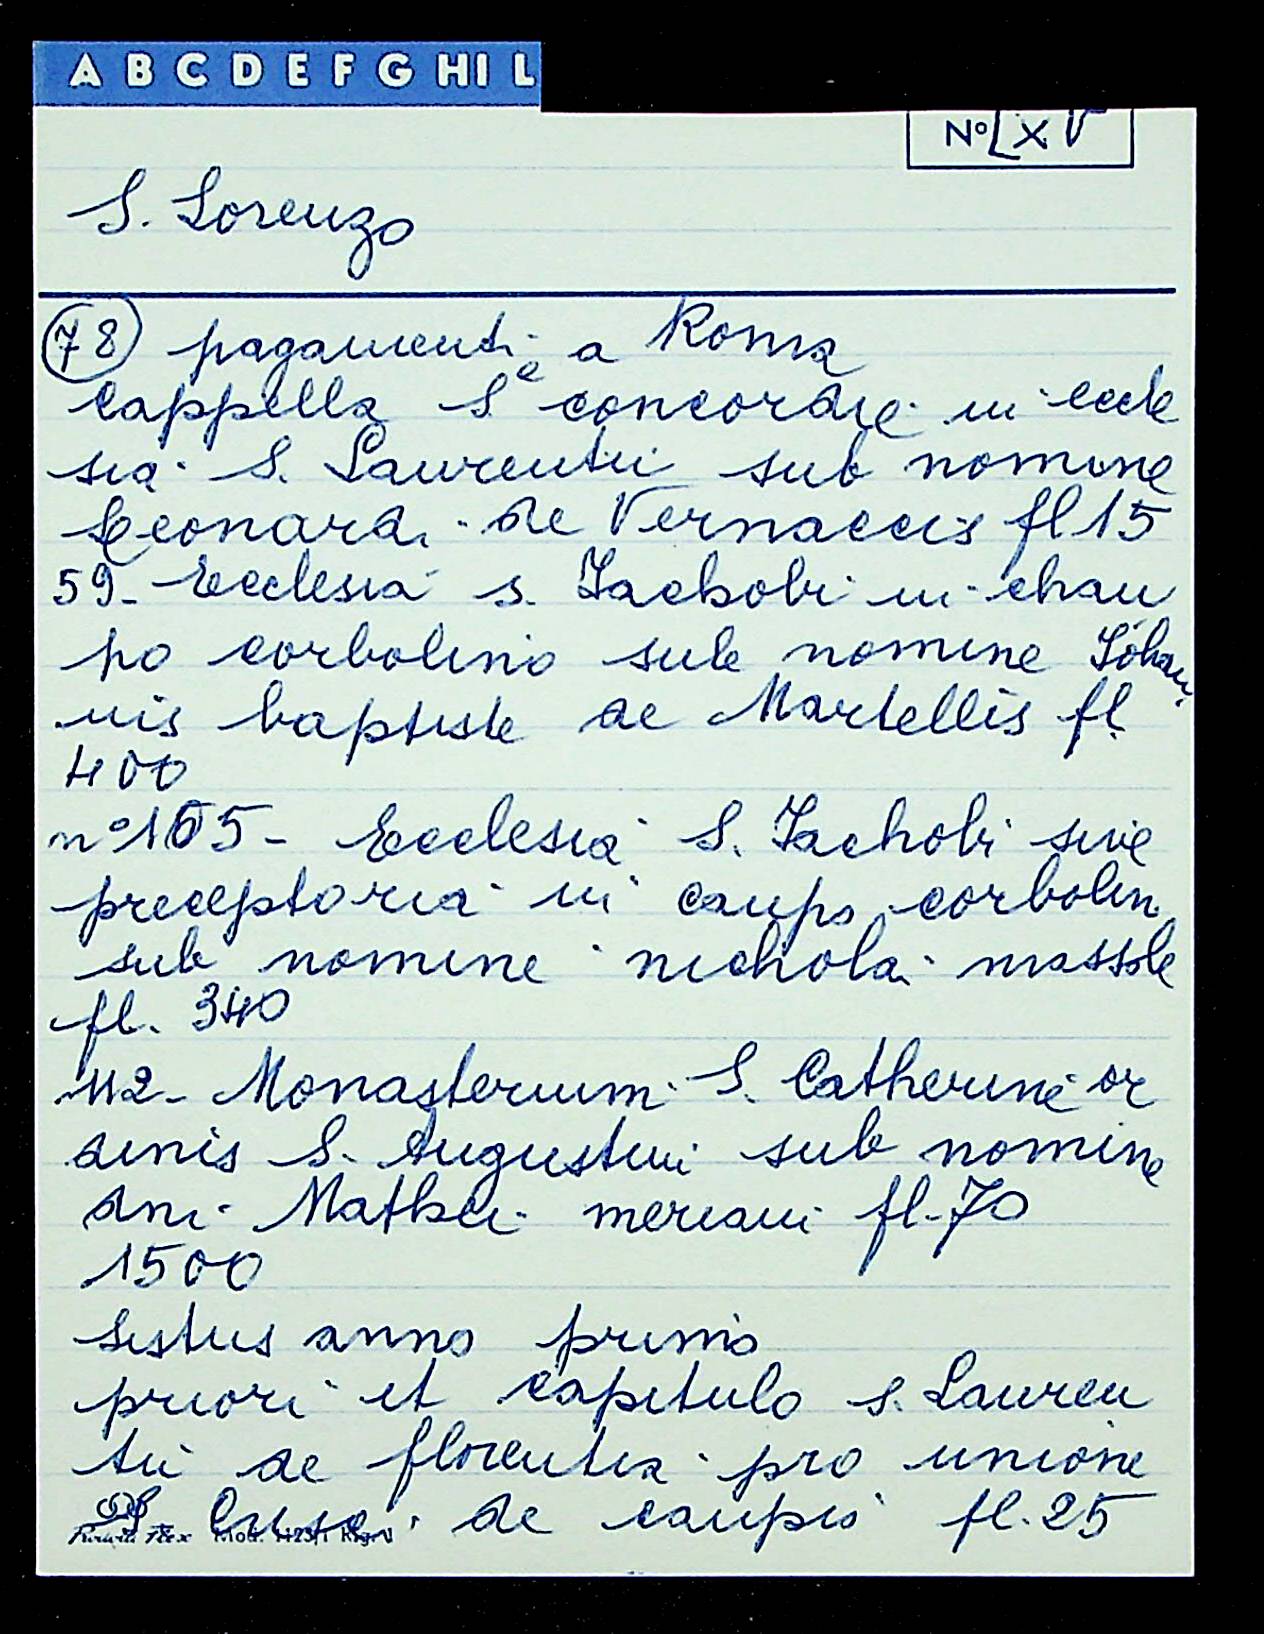 A B C D E F G HI L
No LXV
S. Lorenzo
78 pagamenti a Roma
Cappella Se concordie in eccle
sia S. Laurentii sub nomine
Leonardi de Vernaccis fl 15
59- Ecclesia s. Jackobi in chan
po corbolino sub nomine Johan
nis baptiste de Martellis fl.
400
n° 105- Ecclesia S. Jachobi sive
preceptoria in campo corbolin
sub nomine nichola massole
fl. 340
112- Monasterium S. Catherine or
dinis S. Augustini sub nomine
dni Mathei meriani fl. 70
1500
Sistus anno primo
priori et capitulo s. Lauren
tii de florentia pro unione
de campis fl. 25